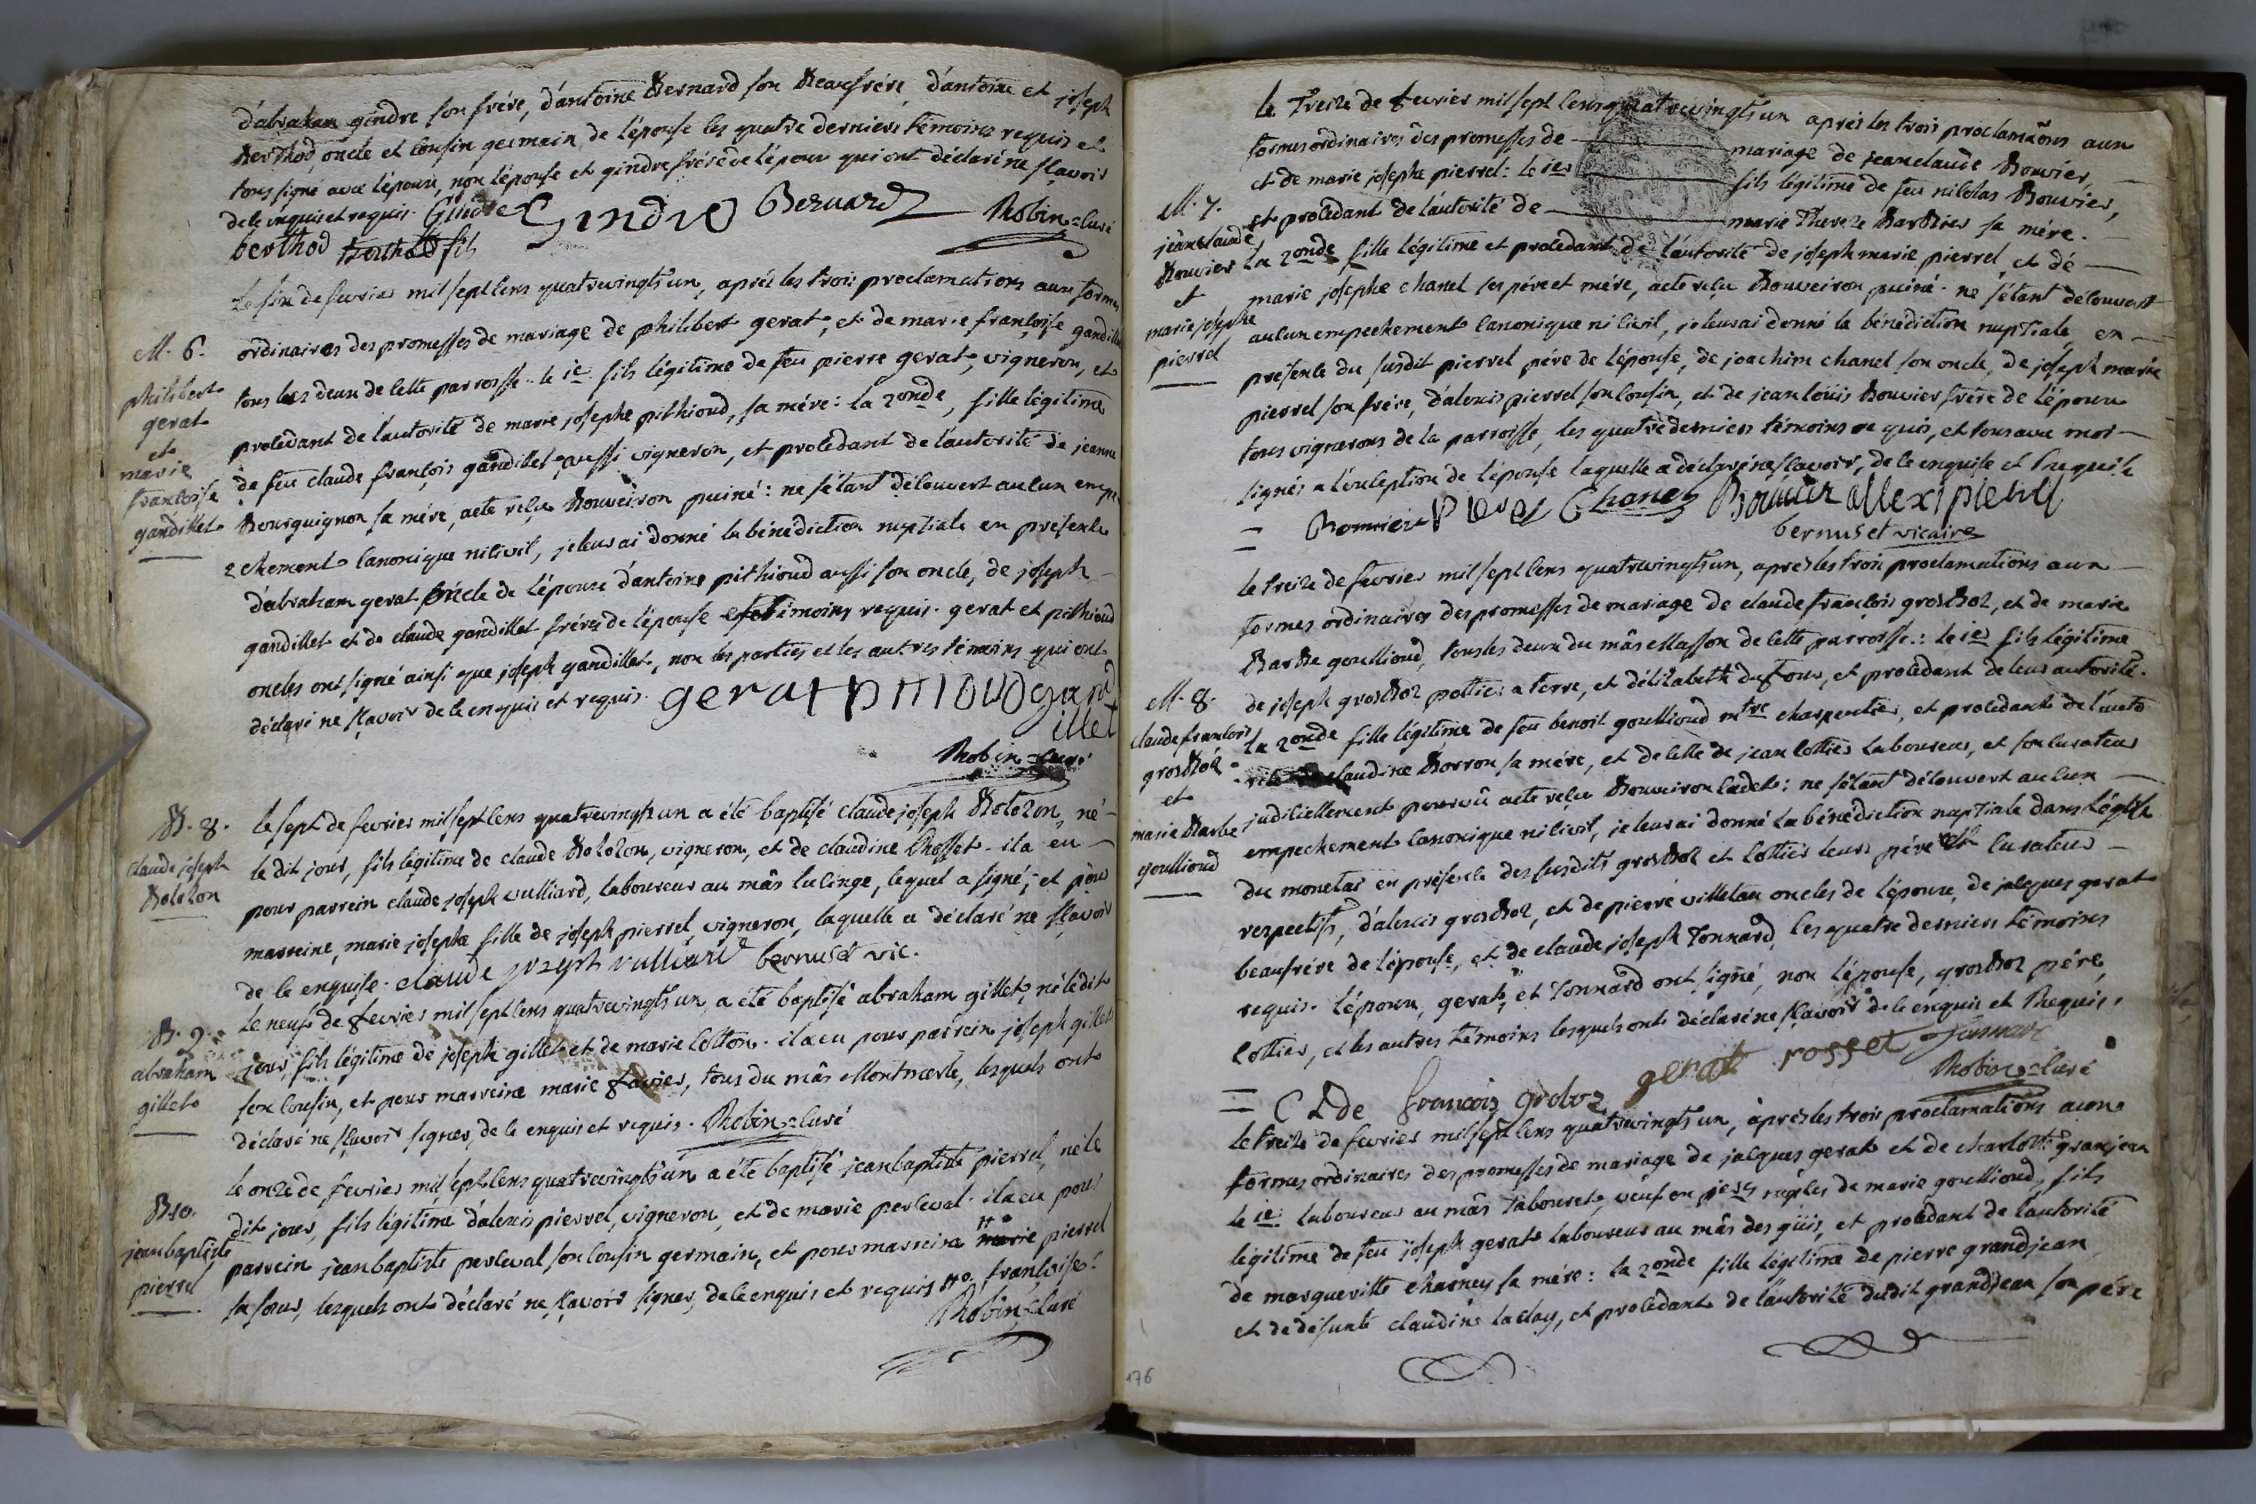 d'abraham gindre son frére, d'antoine Bernard son Beaufrére d'antoine et joseph
Berthod, oncle et cousin germain de l'épouse les quatre derniers témoins requis et
tous signé avec l'époux, non l'épouse et gindre frére de l'époux qui ont déclaré ne sçavoir
de ce enquis et requis. Gindre Gindre Bernard Robin=Curé
berthod berthod fils
Le six de fevrier mil sept cens quatrevingts un, aprés les trois proclamations aux formes
M. 6.
philibert
gerat
et
marie
francoise
gandillet
ordinaires des promesses de mariage de philibert gerat, et de marie françoise gandillet
tous les deux de cette parroisse. le 1er fils légitime de feu pierre gerat, vigneron, et
procedant de l'autorité de marie joséphe pithioud, sa mére: la 2onde, fille légitime
de feu claude françois gandillet aussi vigneron, et procedant de l'autorité de jeanne
Bourguignon sa mére, acte reçu Bouveiron puiné: ne s'étant découvert aucun empe
chement canonique ni civil, je leur ai donné la bénédiction nuptiale en présence
d'abraham gerat oncle de l'époux d'antoine pithioud aussi son oncle, de joseph
gandillet et de claude gandillet fréres de l'épouse témoins requis. gerat et pithioud
oncles ont signé ainsi que joseph gandillet, non les parties et les autres témoins qui ont
déclaré ne sçavoir de ce enquis et requis. gerat pitioud gand
illet
Robin=Curé
B. 8.
Claude joseph
Bolozon
le sept de fevrier mil sept cens quatrevingts un a été baptisé claude joseph Bolozon, né
le dit jour, fils légitime de claude Bolozon, vigneron, et de claudine Rosset. il a eu
pour parrein claude joseph vulliard, laboureur au mâs lucinge, lequel a signé, et pour
marreine, marie josephe fille de joseph pierrel, vigneron, laquelle a déclaré ne sçavoir
de ce enquise. claude joseph vulliard bernuset vic.
B. 9.
abraham
gillet
Le neuf de fevrier mil sept cens quatrevingts un, a été baptisé abraham gillet, né le dit
jour, fils légitime de joseph gillet et de marie cotton. il a eu pour parrein joseph gillet
son cousin, et pour marreine marie favier, tous du mâs Montmerle, lesquels ont
déclaré ne sçavoir signer, de ce enquis et requis. Robin=Curé
B 10.
jean baptiste
pierrel
le onze de fevrier mil sept cens quatrevingts un a été baptisé jean baptiste pierrel, né le
dit jour, fils légitime d'alexis pierrel, vigneron, et de marie perceval. il a eu pour
parrein jean baptiste perceval son cousin germain, et pour marreine marie pierrel
sa soeur, lesquels ont déclaré ne sçavoir signer, de ce enquis et requis. françoise.
Robin=Curé
176
le Treize de fevrier mil sept cens quatrevingts un aprés les trois proclamaons aux
formes ordinaires des promesses de mariage de jean claude Bouvier,
et de marie josephe pierrel: le 1er fils légitime de feu nicolas Bouvier,
et procedant de l'autorité de marie Thereze Barbier sa mére.
M. 7.
jean claude
Bouvier
et
marie josephe
pierrel
la 2onde fille légitime et procedant de l'autorité de joseph marie pierrel et de
marie josephe chanel ses pére et mére, acte reçu Bouveiron puiné. ne s'étant découvert
aucun empechement canonique ni civil, je leur ai donné la bénédiction nuptiale en
présence du susdit pierrel pére de l'épouse, de joachim chanel son oncle, de joseph marie
pierrel son frére, d'alexis pierrel son cousin, et de jean loüis Bouvier frére de l'époux
tous vignerons de la parroisse, les quatre derniers témoins requis, et tous avec moi
signés a l'exception de l'épouse laquelle a déclaré ne sçavoir, de ce enquise et requise
= Bouvier Pierel Chanel Bouvier allexi pierel
bernuset vicaire
le treize de fevrier mil sept cens quatrevingts un, aprés les trois proclamations aux
formes ordinaires des promesses de mariage de claude françois grosboz, et de marie
Barbe goullioud, tous les deux du mâs Masson de cette parroisse.: le 1er fils légitime
M. 8.
claude francois
grosboz
et
marie Barbe
goullioud
de joseph grosboz pottier a terre, et d'élizabeth dufour, et procedant de leur autorité.
la 2onde fille légitime de feu benoit goullioud mtre charpentier, et procedant de l'auto
rité claudine Borron sa mére, et de celle de jean cottier laboureur, et son curateur
judiciellement pourvû acte reçu Bouveiron cadet: ne s'étant découvert aucun
empechement canonique ni civil, je leur ai donné la bénédiction nuptiale dans l'église
du monetai en présence des susdits grosboz et cottier leurs pére et curateur
respectifs, d'alexis grosboz, et de pierre villetan oncles de l'époux, de jacques gerat
beaufrére de l'épouse, et de claude joseph Tonnard, les quatre derniers témoins
requis. l'époux, gerat, et Tonnard ont signé, non l'épouse, grosboz pére,
cottier, et les autres témoins lesquels ont déclaré ne sçavoir de ce enquis et Requis.
= Cl de francois groboz gerat rosset tonnard
Robin=Curé
le treize de fevrier mil sept cens quatrevingts un, aprés les trois proclamations aux
formes ordinaires des promesses de mariage de jacques gerat et de charlotte granjean
le 1er laboureur au mâs Tabouret, veuf en pes nopces de marie goullioud, fils
légitime de feu joseph gerat laboureur au mâs des guis, et procedant de l'autorité
de margueritte charney sa mére: la 2onde fille légitime de pierre grandjean
et de défunte claudine laclay, et procedant de l'autorité dudit grandjean son pére